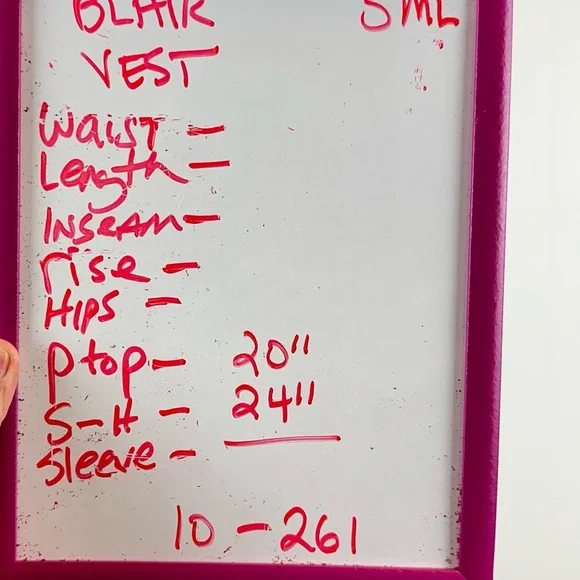 BLAIR SML
VEST
Waist -
Length -
Inseam -
rise -
Hips -
P top - 20"
S-H - 24"
Sleeve -
10 - 261